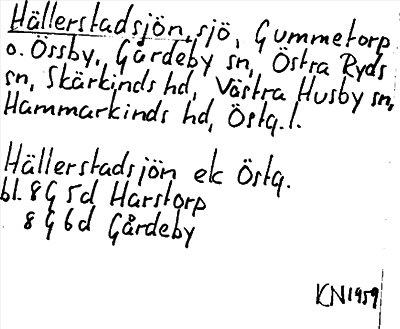 Hällerstadsjön, sjö, Gummetorp
o. Össby, Gårdeby sn, Östra Ryds
sn, Skärkinds hd, Västra Husby sn,
Hammarkinds hd, Östg.l.
Hällerstadsjön ek Östg.
bl. 8G 5d Harstorp
8G6d Gårdeby
KN1959